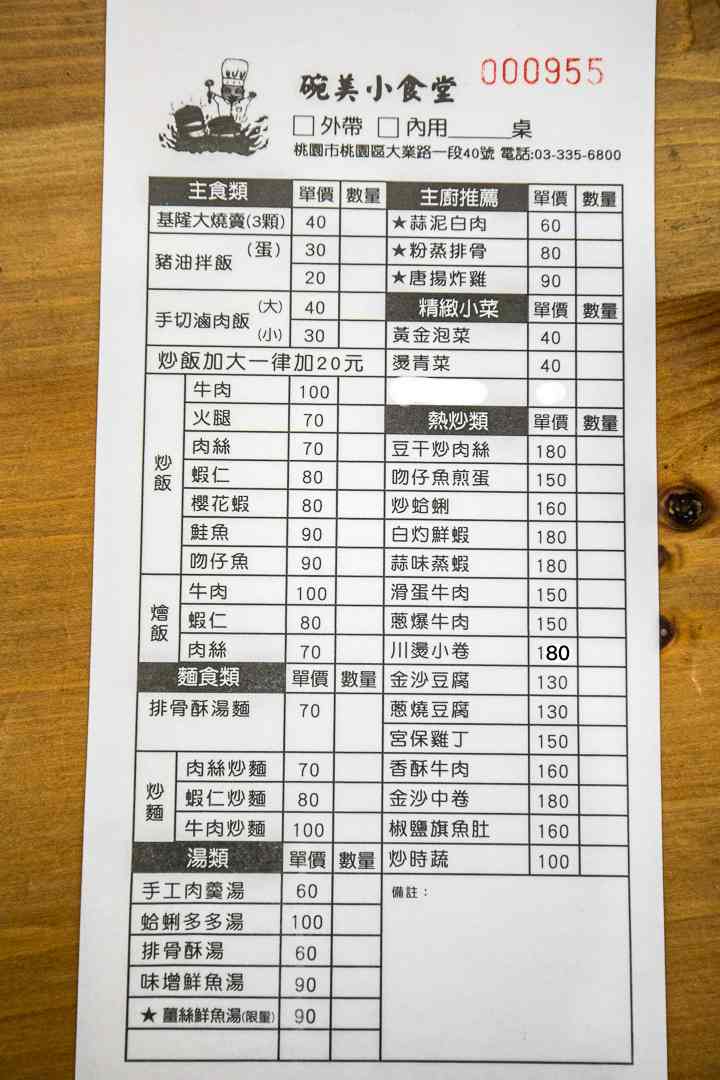 碗美小食堂
000955
□外帶 □內用_____桌
桃園市桃園區大業路一段40號 電話:03-335-6800
主食類 單價 數量
基隆大燒賣(3顆) 40
豬油拌飯 (蛋) 30
20
手切滷肉飯 (大) 40
(小) 30
炒飯加大一律加20元
炒飯
牛肉 100
火腿 70
肉絲 70
蝦仁 80
櫻花蝦 80
鮭魚 90
吻仔魚 90
燴飯
牛肉 100
蝦仁 80
肉絲 70
麵食類 單價 數量
排骨酥湯麵 70
炒麵
肉絲炒麵 70
蝦仁炒麵 80
牛肉炒麵 100
湯類 單價 數量
手工肉羹湯 60
蛤蜊多多湯 100
排骨酥湯 60
味增鮮魚湯 90
★薑絲鮮魚湯(限量) 90
主廚推薦 單價 數量
★蒜泥白肉 60
★粉蒸排骨 80
★唐揚炸雞 90
精緻小菜 單價 數量
黃金泡菜 40
燙青菜 40
熱炒類 單價 數量
豆干炒肉絲 180
吻仔魚煎蛋 150
炒蛤蜊 160
白灼鮮蝦 180
蒜味蒸蝦 180
滑蛋牛肉 150
蔥爆牛肉 150
川燙小卷 180
金沙豆腐 130
蔥燒豆腐 130
宮保雞丁 150
香酥牛肉 160
金沙中卷 180
椒鹽旗魚肚 160
炒時蔬 100
備註：